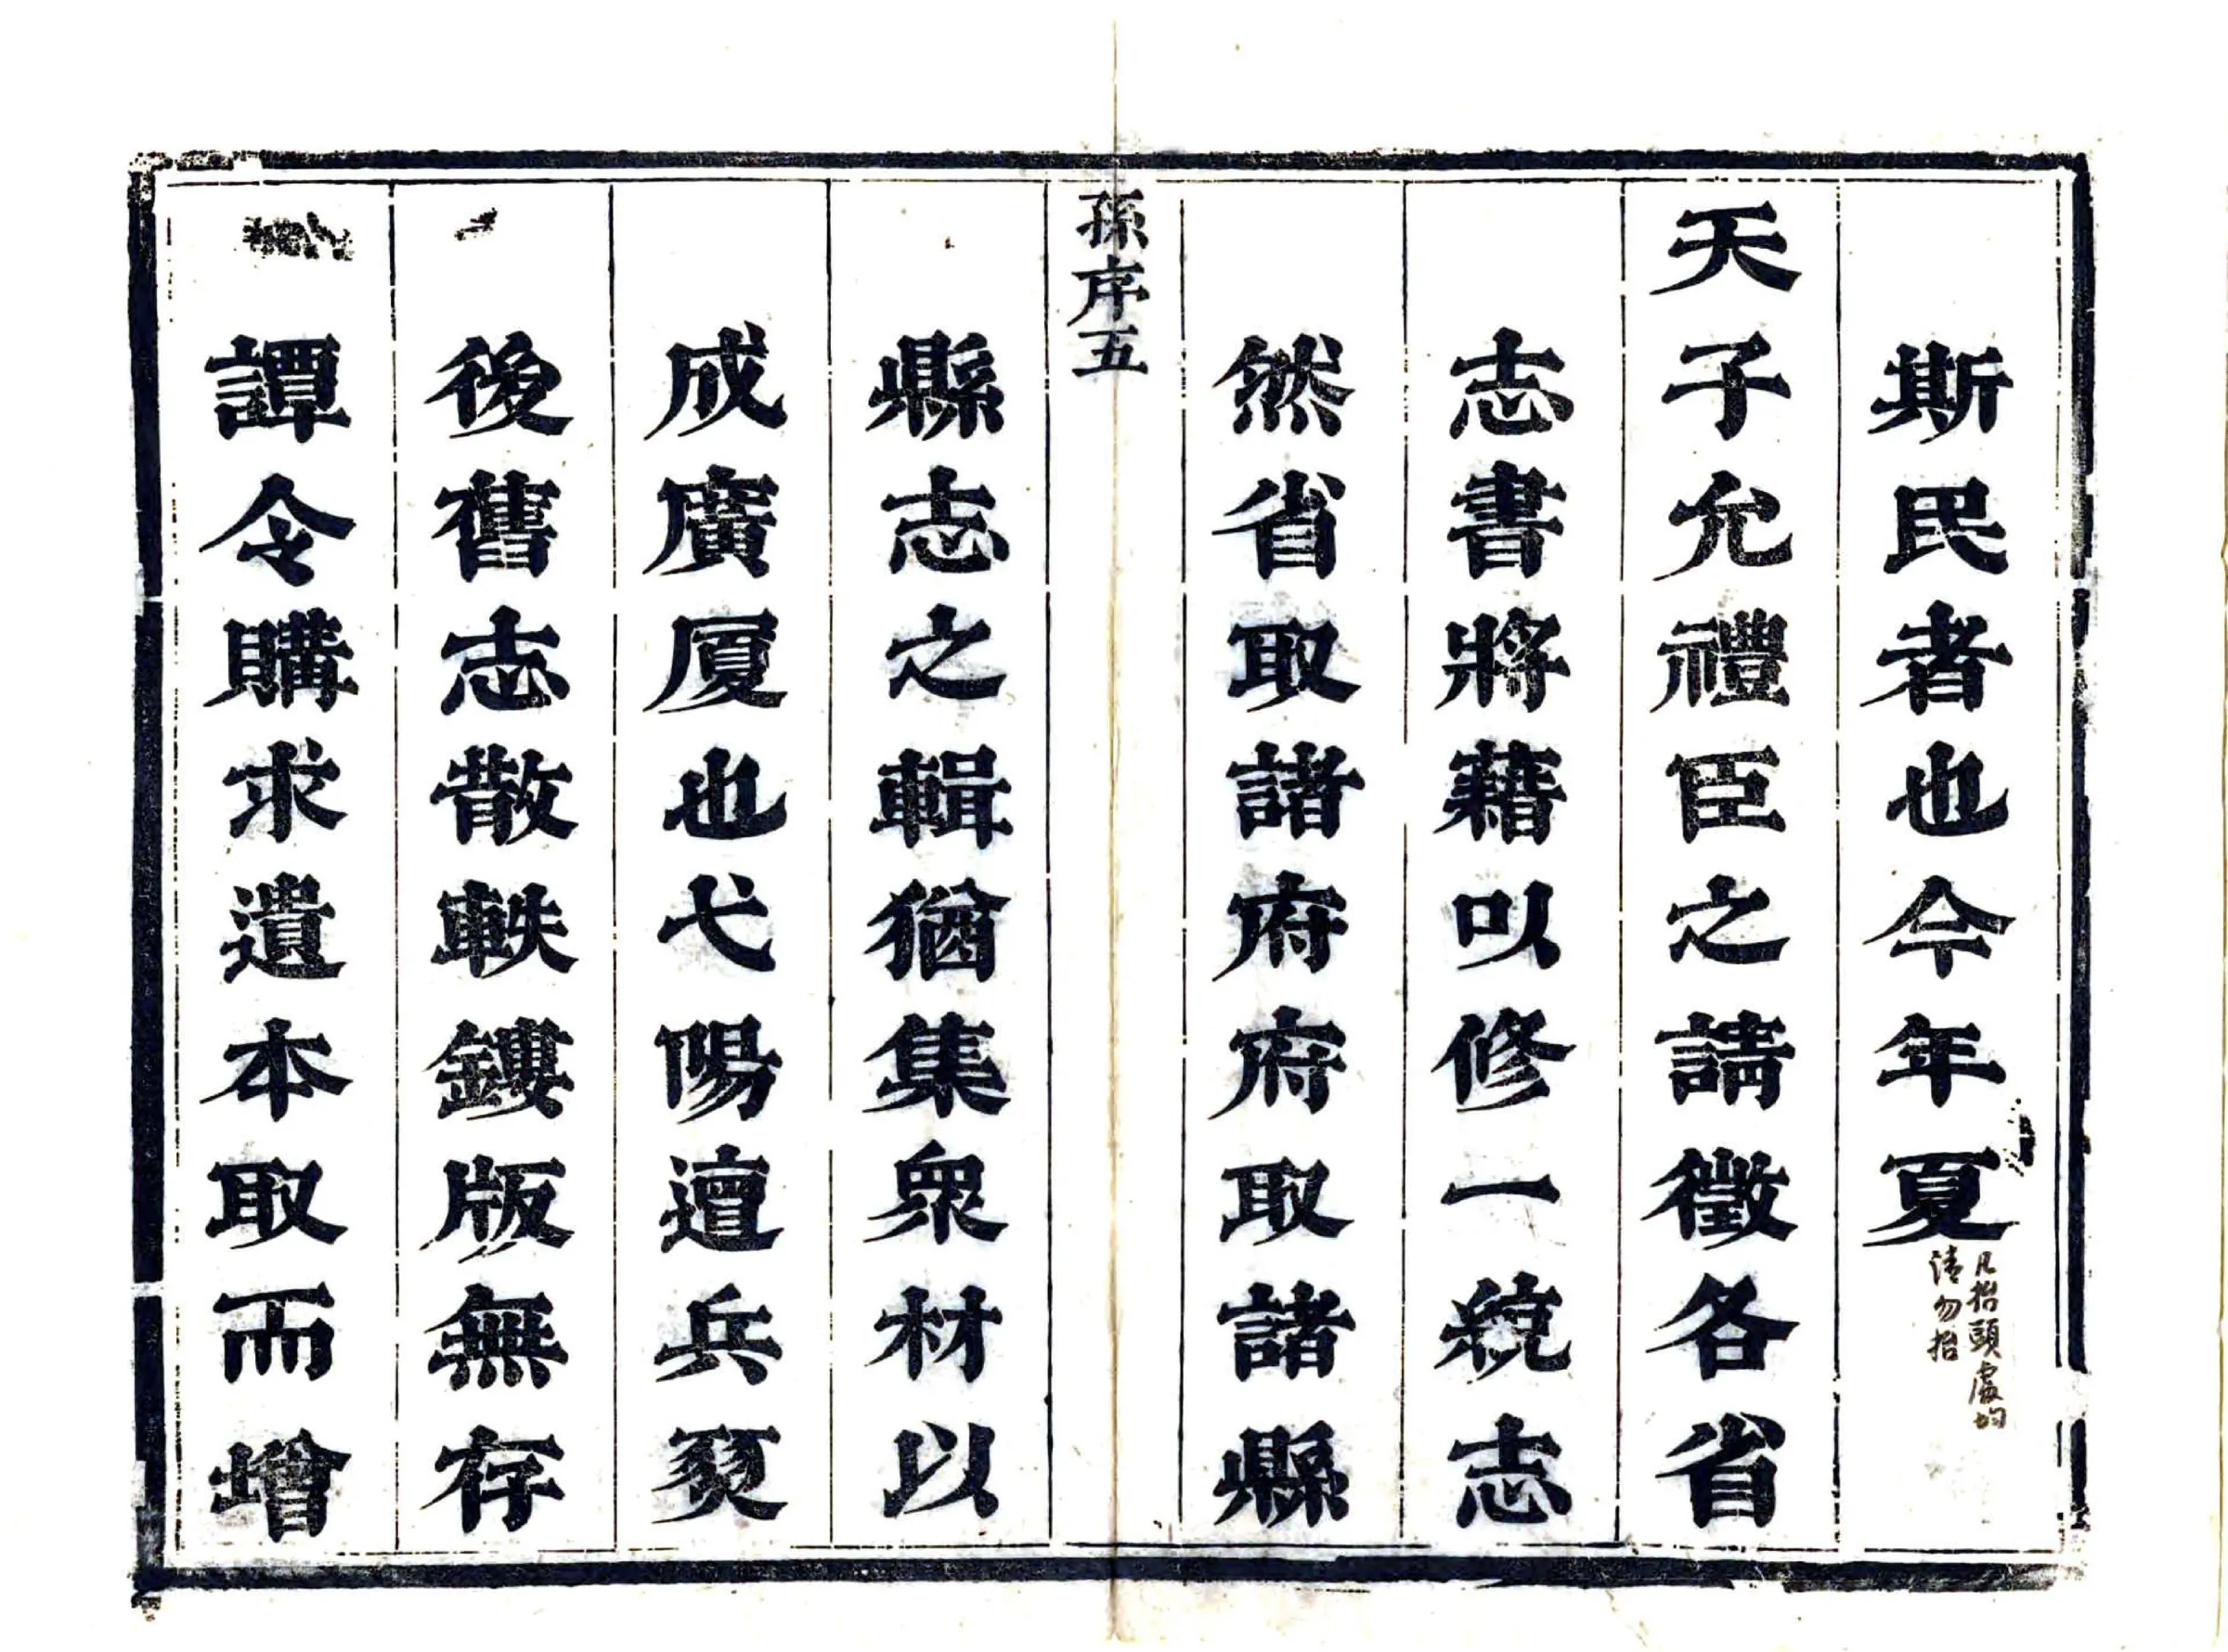 斯民者也今年夏
凡抬頭處均
請勿抬
天子允禮臣之請徵各省
志書將藉以修一統志
然省取諸府府取諸縣
孫序五
縣志之輯猶集衆材以
成廣厦也弋陽邅兵燹
後舊志散軼鏤版無存
譚令購求遺本取而增